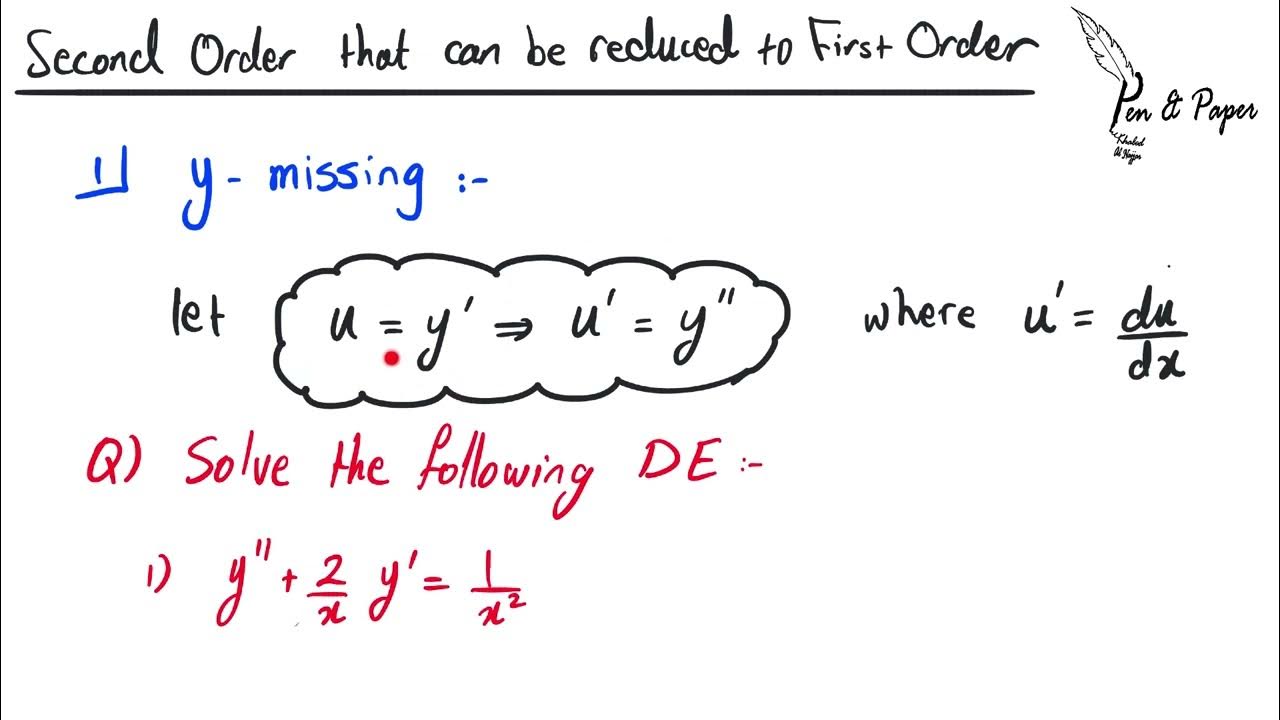 Second Order that can be reduced to First Order
Pen & Paper
Khaled
Al Najjar
1) y - missing :-
let u = y' ⇒ u' = y'' where u' = du/dx
Q) Solve the following DE :-
1) y'' + 2/x y' = 1/x²